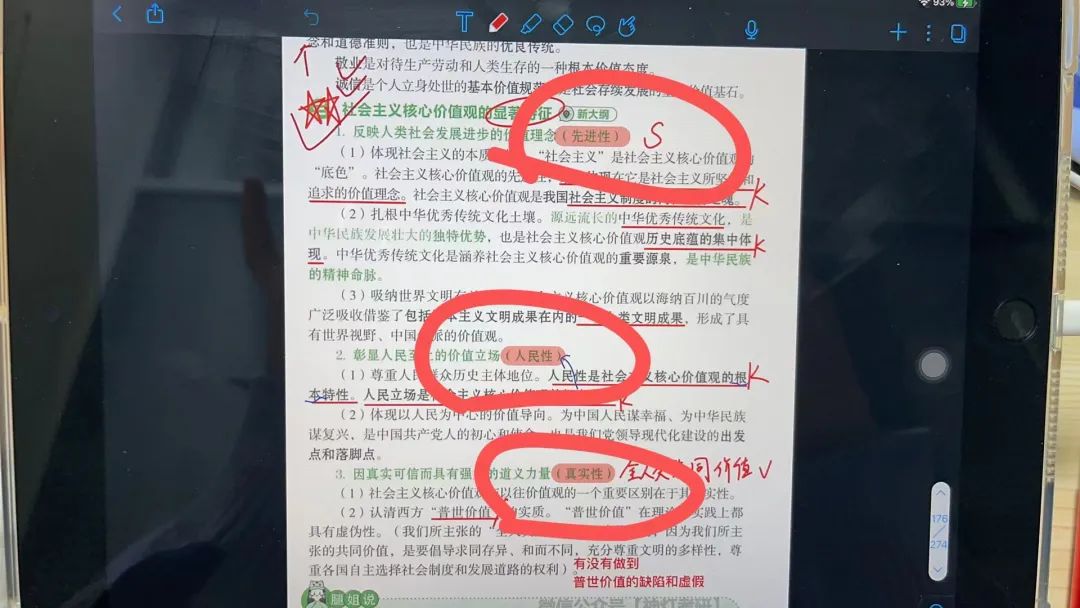 93%
念和道德准则，也是中华民族的优良传统。
敬业是对待生产劳动和人类生存的一种根本价值态度。
诚信是个人立身处世的基本价值规范 是社会存续发展的 价值基石。
社会主义核心价值观的显著特征 新大纲
1. 反映人类社会发展进步的价值理念（先进性） S
（1）体现社会主义的本质 “社会主义”是社会主义核心价值观的
“底色”。社会主义核心价值观的先进性， 现在它是社会主义所坚 和
追求的价值理念。社会主义核心价值观是我国社会主义制度的 魂。 K
（2）扎根中华优秀传统文化土壤。源远流长的中华优秀传统文化，是
中华民族发展壮大的独特优势，也是社会主义核心价值观历史底蕴的集中体 K
现。中华优秀传统文化是涵养社会主义核心价值观的重要源泉，是中华民族
的精神命脉。
（3）吸纳世界文明 主义核心价值观以海纳百川的气度
广泛吸收借鉴了包括 本主义文明成果在内的一 类文明成果，形成了具
有世界视野、中国 派的价值观。
2. 彰显人民至上的价值立场（人民性）
（1）尊重人民群众历史主体地位。人民性是社会主义核心价值观的根 K
本特性。人民立场是 K
（2）体现以人民为中心的价值导向。为中国人民谋幸福、为中华民族
谋复兴，是中国共产党人的初心和使命，也是我们党领导现代化建设的出发
点和落脚点。
3. 因真实可信而具有强 的道义力量（真实性） 全人类共同价值
（1）社会主义核心价值观 以往价值观的一个重要区别在于其 实性。
（2）认清西方“普世价值” 的实质。“普世价值”在理论 实践上都
具有虚伪性。（我们所主张的“ 因为我们所主
张的共同价值，是要倡导求同存异、和而不同，充分尊重文明的多样性，尊
重各国自主选择社会制度和发展道路的权利）。
有没有做到
普世价值的缺陷和虚假
腿姐说
微信公众号【神灯考研】
176
274